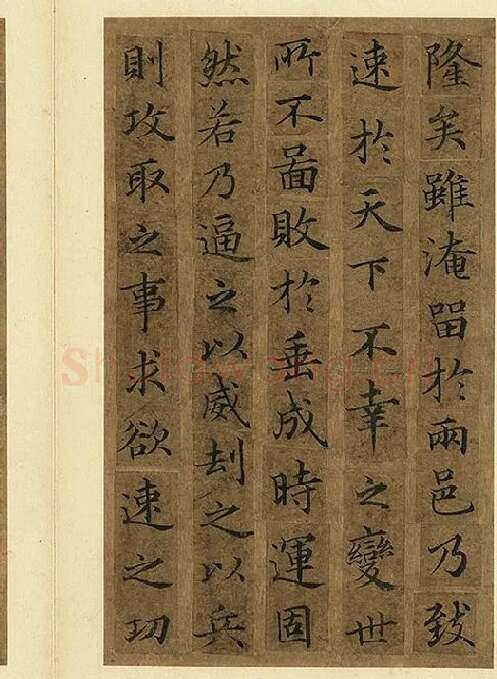 隆矣雖淹留於兩邑乃致
速於天下不幸之變世
所不啚敗於垂成時運固
然若乃逼之以威刦之以兵
則攻取之事求欲速之功